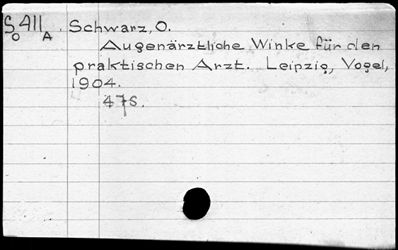 So 411 A. Schwarz, O.
Augenärztliche Winke für den
praktischen Arzt. Leipzig, Vogel,
1904.
47S.